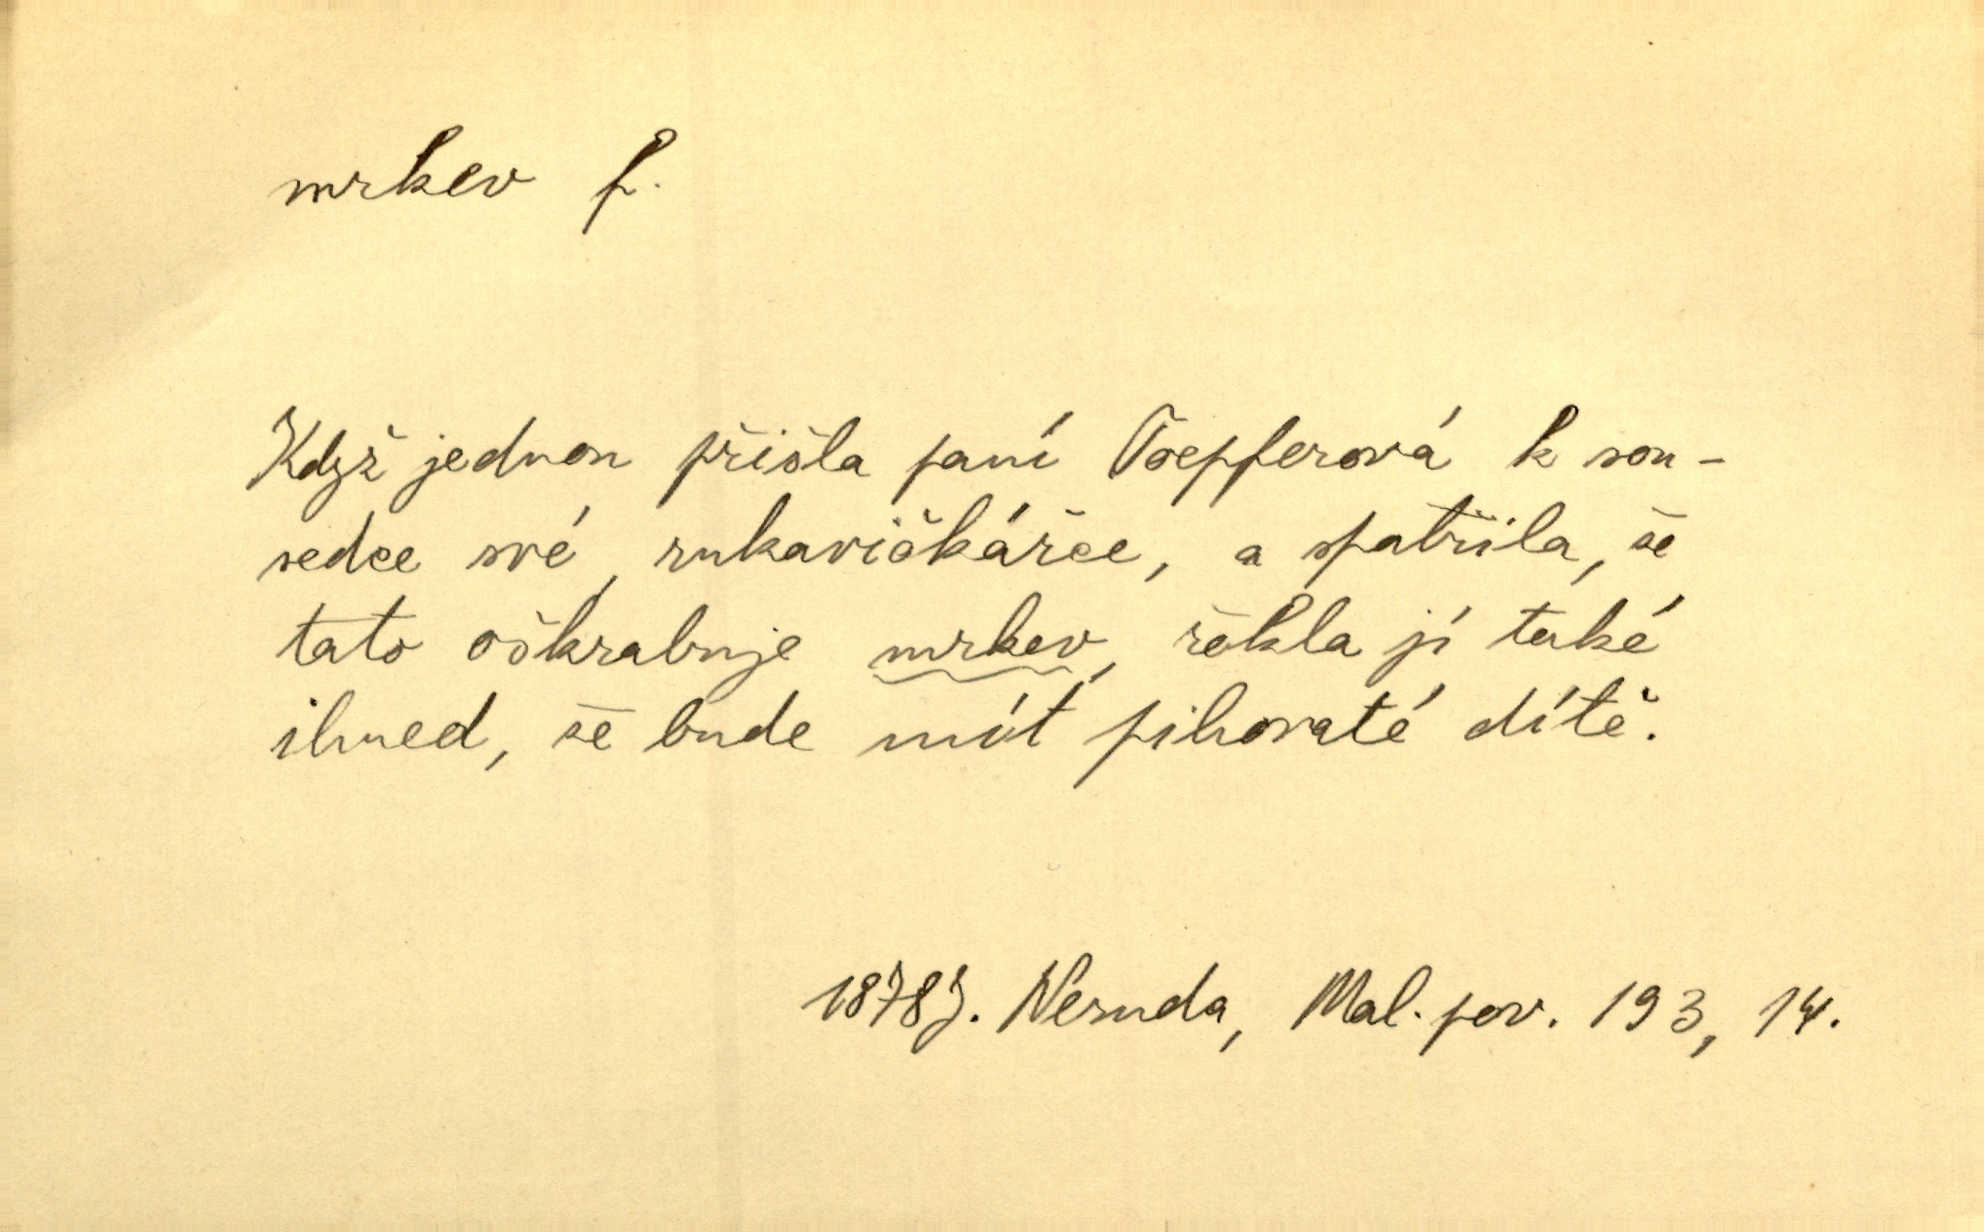 mrkev f.
Když jednou přišla paní Toepferová k sou-
sedce své, rukavičkářce, a spatřila, že
tato oškrabuje mrkev, řekla jí také
ihned, že bude mít pihovaté dítě.
1878 J. Neruda, Mal. pov. 193, 14.